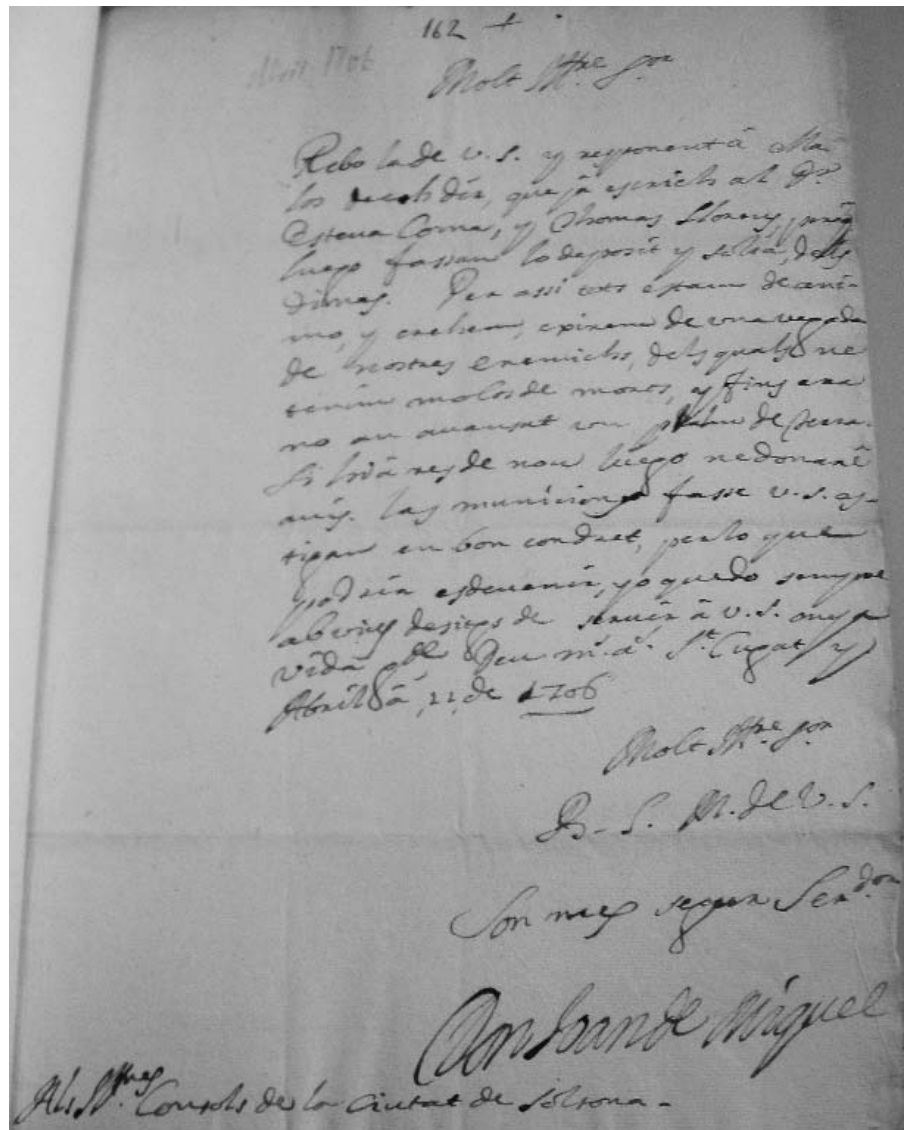 162 +
Abril 1706
Molt Iltre Sor
Rebo la de V. S. y responent á
los dech dir, que já escrich al Dr
Esteva Coma, y Thomas Llorens, perq
luego fassan lo deposit y dells
Per assi tots estam de ani-
mo, y crehem, exirem de una vegada
de nostres enemichs, dels quals ne
tenim molts de morts, y fins ara
no an avansat un palm de terra.
Si hiá res de nou luego ne donaré
avis. las municions fasse V. S. es-
tigan en bon condret, perlo que
podria esdevenir, yo quedo sempre
ab vius desitgs de servir á V. S. cuya
vida gde Deu ms as St Cugat y
Abril á 11 de 1706
Molt Iltre Sor
B. S. M. de V. S.
Son mes segur Serdor
Don Juan de Miquel
Als Iltres Consols de la Ciutat de Solsona.